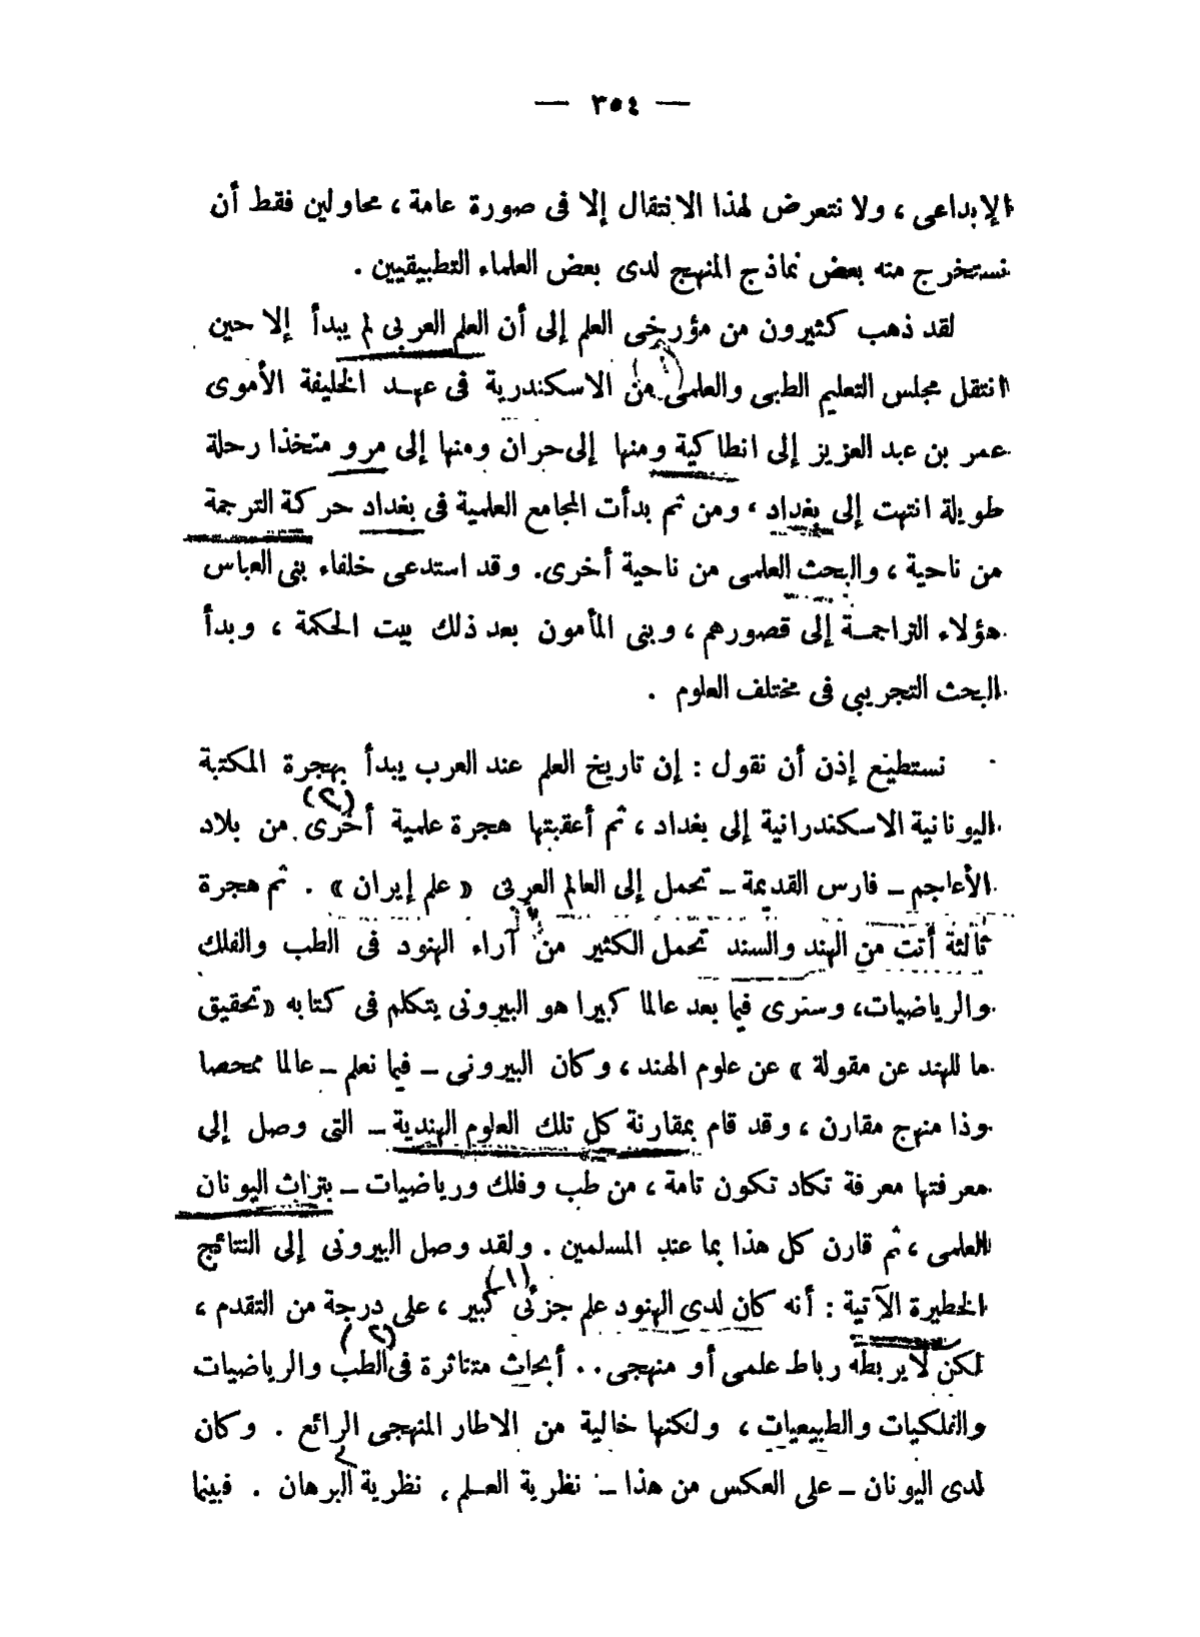 — ٣٥٤ —
الإبداعى ، ولا نتعرض لهذا الانتقال إلا فى صورة عامة ، محاولين فقط أن
نستخرج منه بعض نماذج المنهج لدى بعض العلماء التطبيقيين .
لقد ذهب كثيرون من مؤرخى العلم إلى أن العلم العربى لم يبدأ إلا حين
انتقل مجلس التعليم الطبى والعلمى من الاسكندرية فى عهد الخليفة الأموى
عمر بن عبد العزيز إلى انطاكية ومنها إلى حران ومنها إلى مرو متخذا رحلة
طويلة انتهت إلى بغداد ، ومن ثم بدأت المجامع العلمية فى بغداد حركة الترجمة
من ناحية ، والبحث العلمى من ناحية أخرى. وقد استدعى خلفاء بنى العباس
هؤلاء التراجمة إلى قصورهم ، وبنى المأمون بعد ذلك بيت الحكمة ، وبدأ
البحث التجريبى فى مختلف العلوم .
نستطيع إذن أن نقول : إن تاريخ العلم عند العرب يبدأ بهجرة المكتبة
(٢)
اليونانية الاسكندرانية إلى بغداد ، ثم أعقبتها هجرة علمية أخرى من بلاد
الأعاجم – فارس القديمة – تحمل إلى العالم العربى « علم إيران » . ثم هجرة
ثالثة أتت من الهند والسند تحمل الكثير من آراء الهنود فى الطب والفلك
والرياضيات، وسنرى فيما بعد عالما كبيرا هو البيرونى يتكلم فى كتابه «تحقيق
ما للهند عن مقولة » عن علوم الهند ، وكان البيرونى – فيما نعلم – عالما ممحصا
وذا منهج مقارن ، وقد قام بمقارنة كل تلك العلوم الهندية – التى وصل إلى
معرفتها معرفة تكاد تكون تامة ، من طب وفلك ورياضيات – بتراث اليونان
العلمى ، ثم قارن كل هذا بما عند المسلمين . ولقد وصل البيرونى إلى النتائج
(١)
الخطيرة الآتية : أنه كان لدى الهنود علم جزئى كبير ، على درجة من التقدم ،
(٢)
لكن لا يربطه رباط علمى أو منهجى . . أبحاث متناثرة فى الطب والرياضيات
والفلكيات والطبيعيات ، ولكنها خالية من الاطار المنهجى الرائع . وكان
لدى اليونان – على العكس من هذا – نظرية العلم ، نظرية البرهان . فبينما